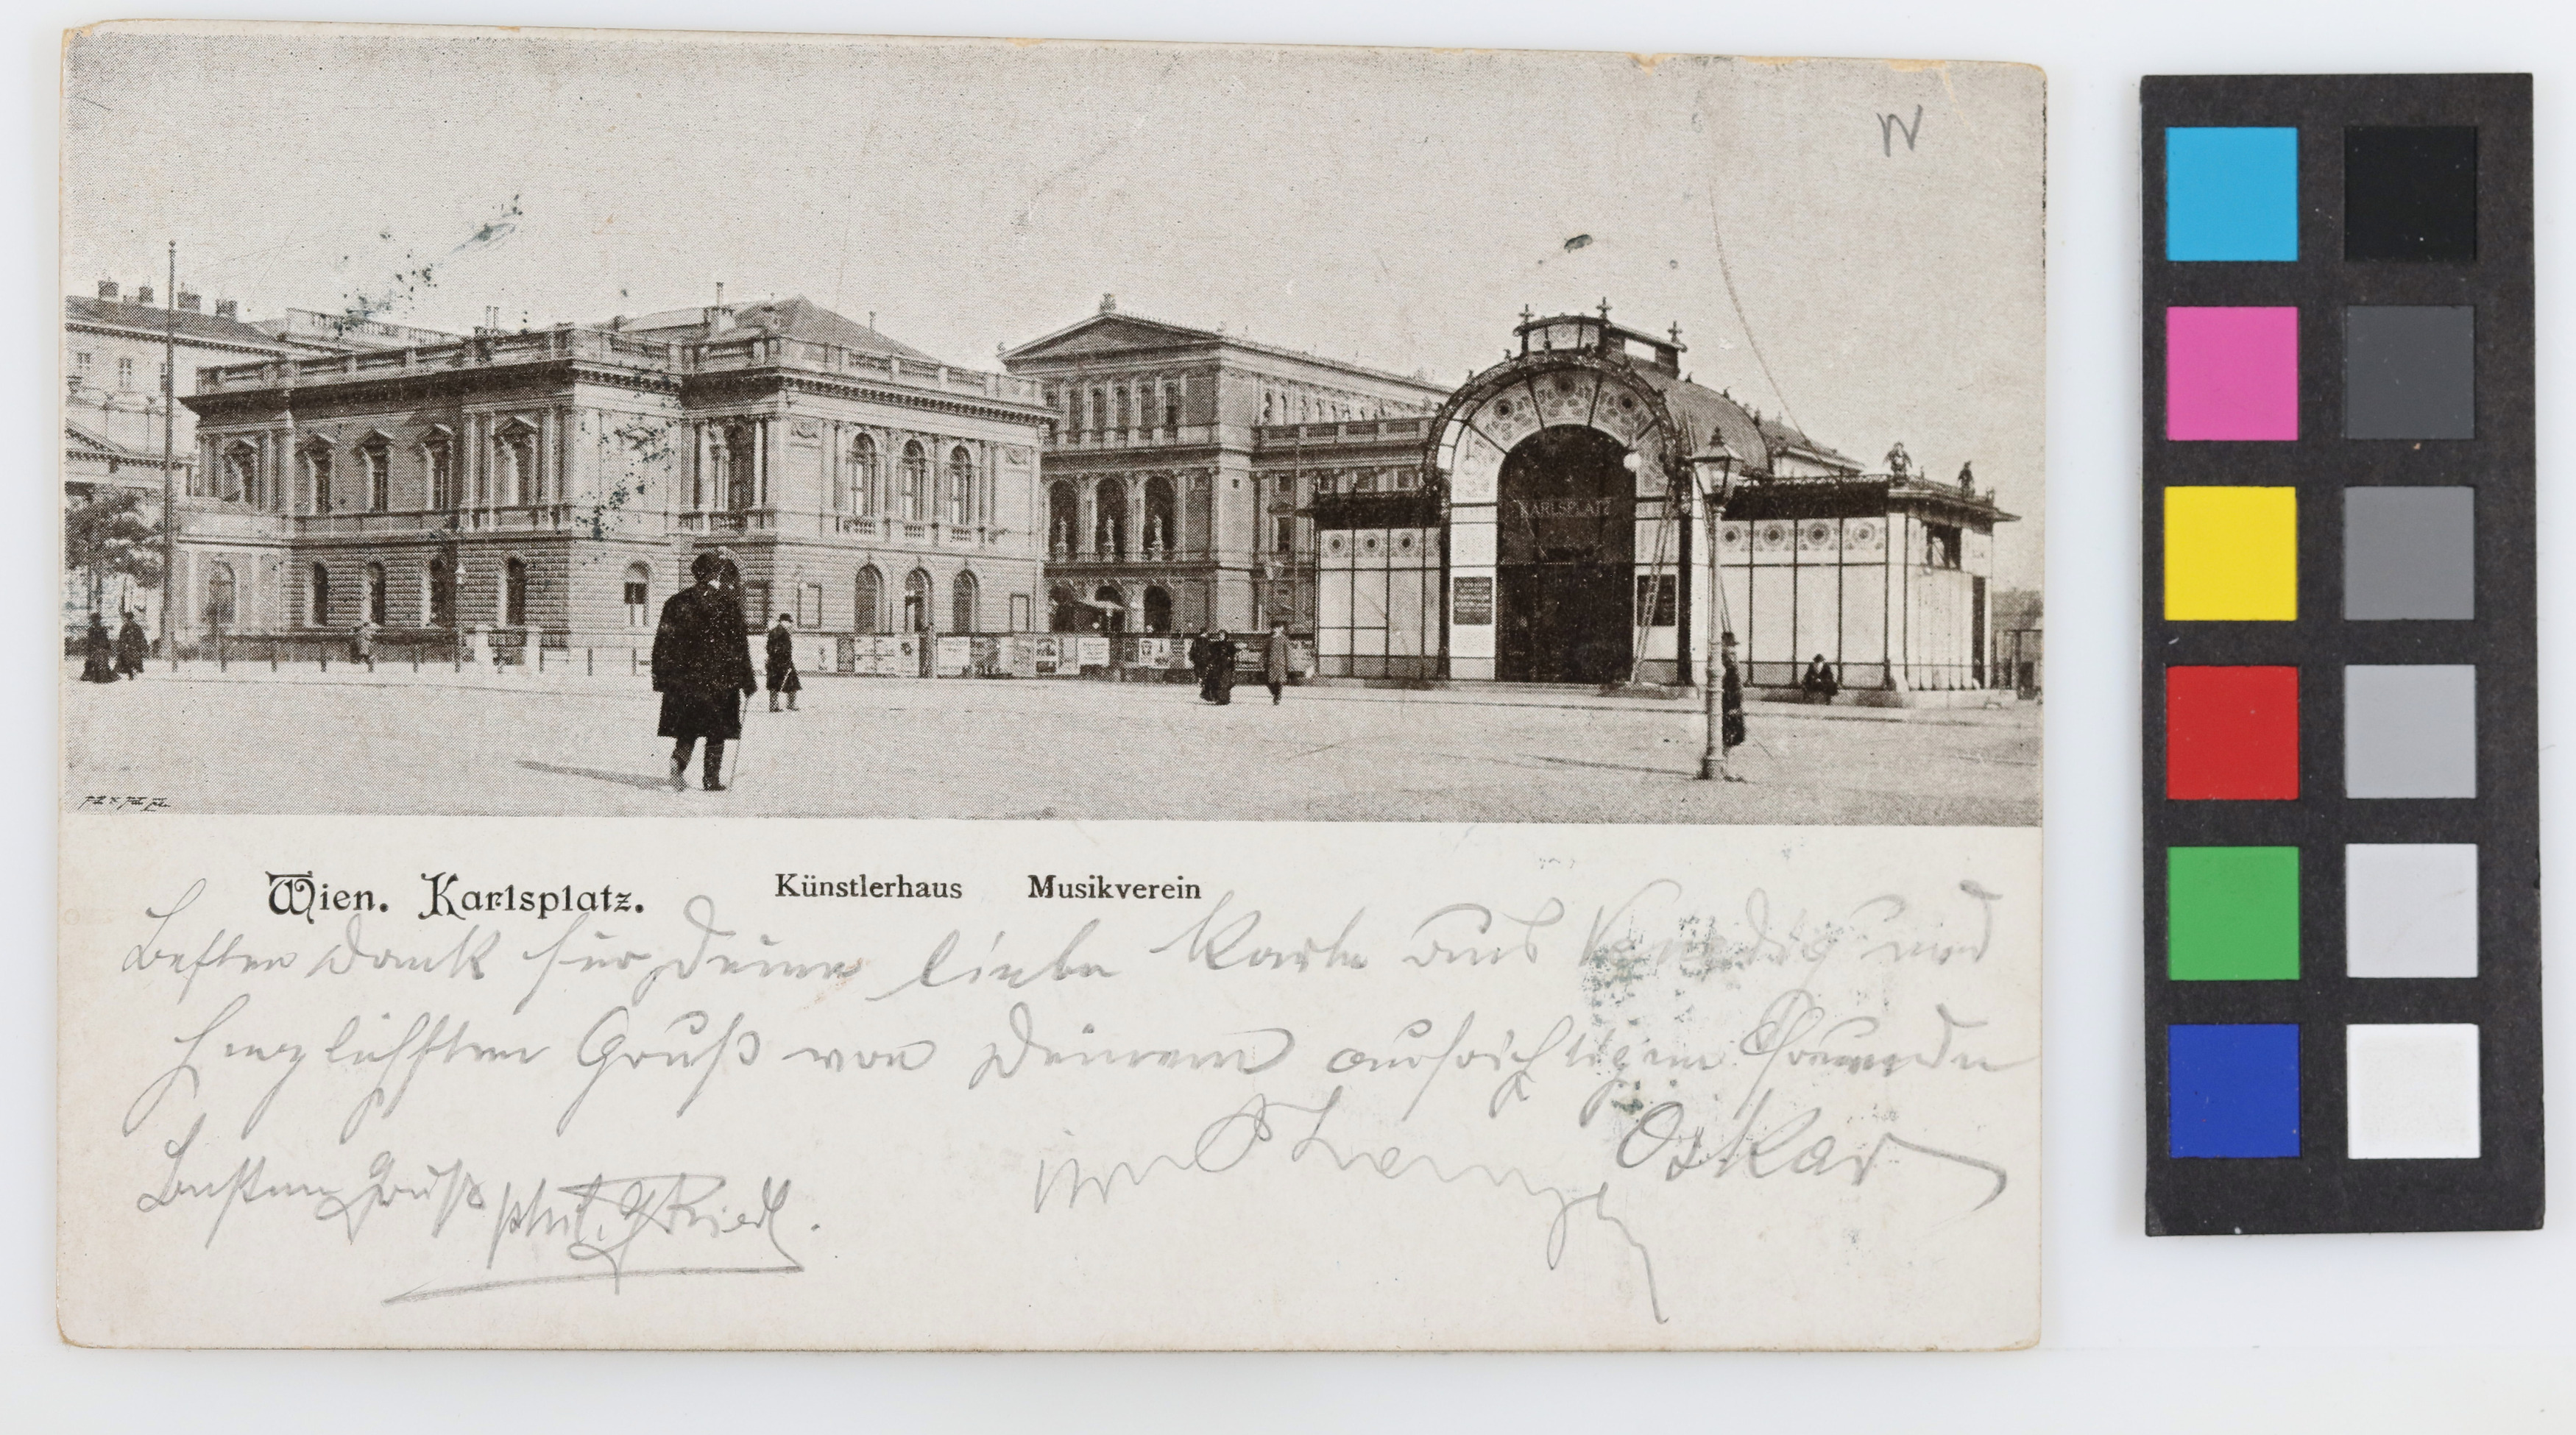 W
KARLSPLATZ
Wien. Karlsplatz. Künstlerhaus Musikverein
Besten Dank für Deine liebe Karte aus Venedig und
herzlichsten Gruß von Deinem aufrichtigem Freunde
Oskar
Besten Gruß phil. Friedl.